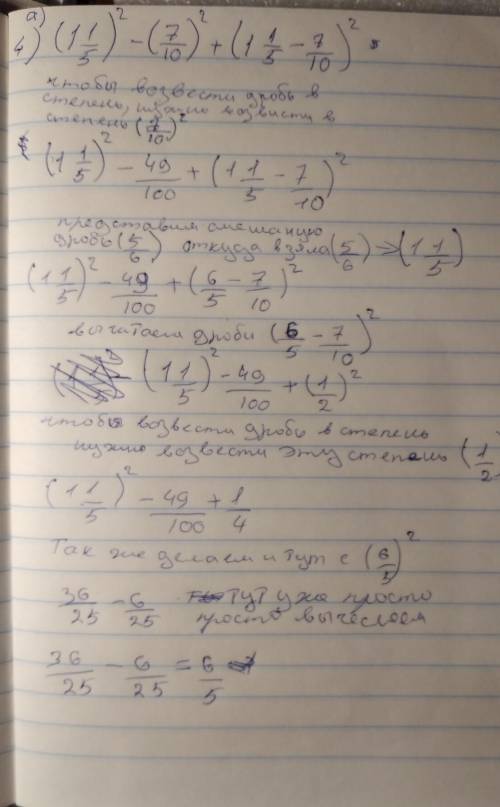 а)
4) (1 1/5)² − (7/10)² + (1 1/5 − 7/10)²
чтобы возвести дробь в
степень, нужно возвисти в
степень (7/10)²
(1 1/5)² − 49/100 + (1 1/5 − 7/10)²
представим смешаную
дробь (5/6) откуда взяла (5/6) => (1 1/5)
(1 1/5)² − 49/100 + (6/5 − 7/10)²
вычитаем дроби (6/5 − 7/10)²
(1 1/5)² − 49/100 + (1/2)²
чтобы возвести дробь в степень
нужно возвести эту степень (1/2
(1 1/5)² − 49/100 + 1/4
Так же делаем и тут с (6/5)²
36/25 − 6/25 тут уже просто
просто вычеслаем
36/25 − 6/25 = 6/5